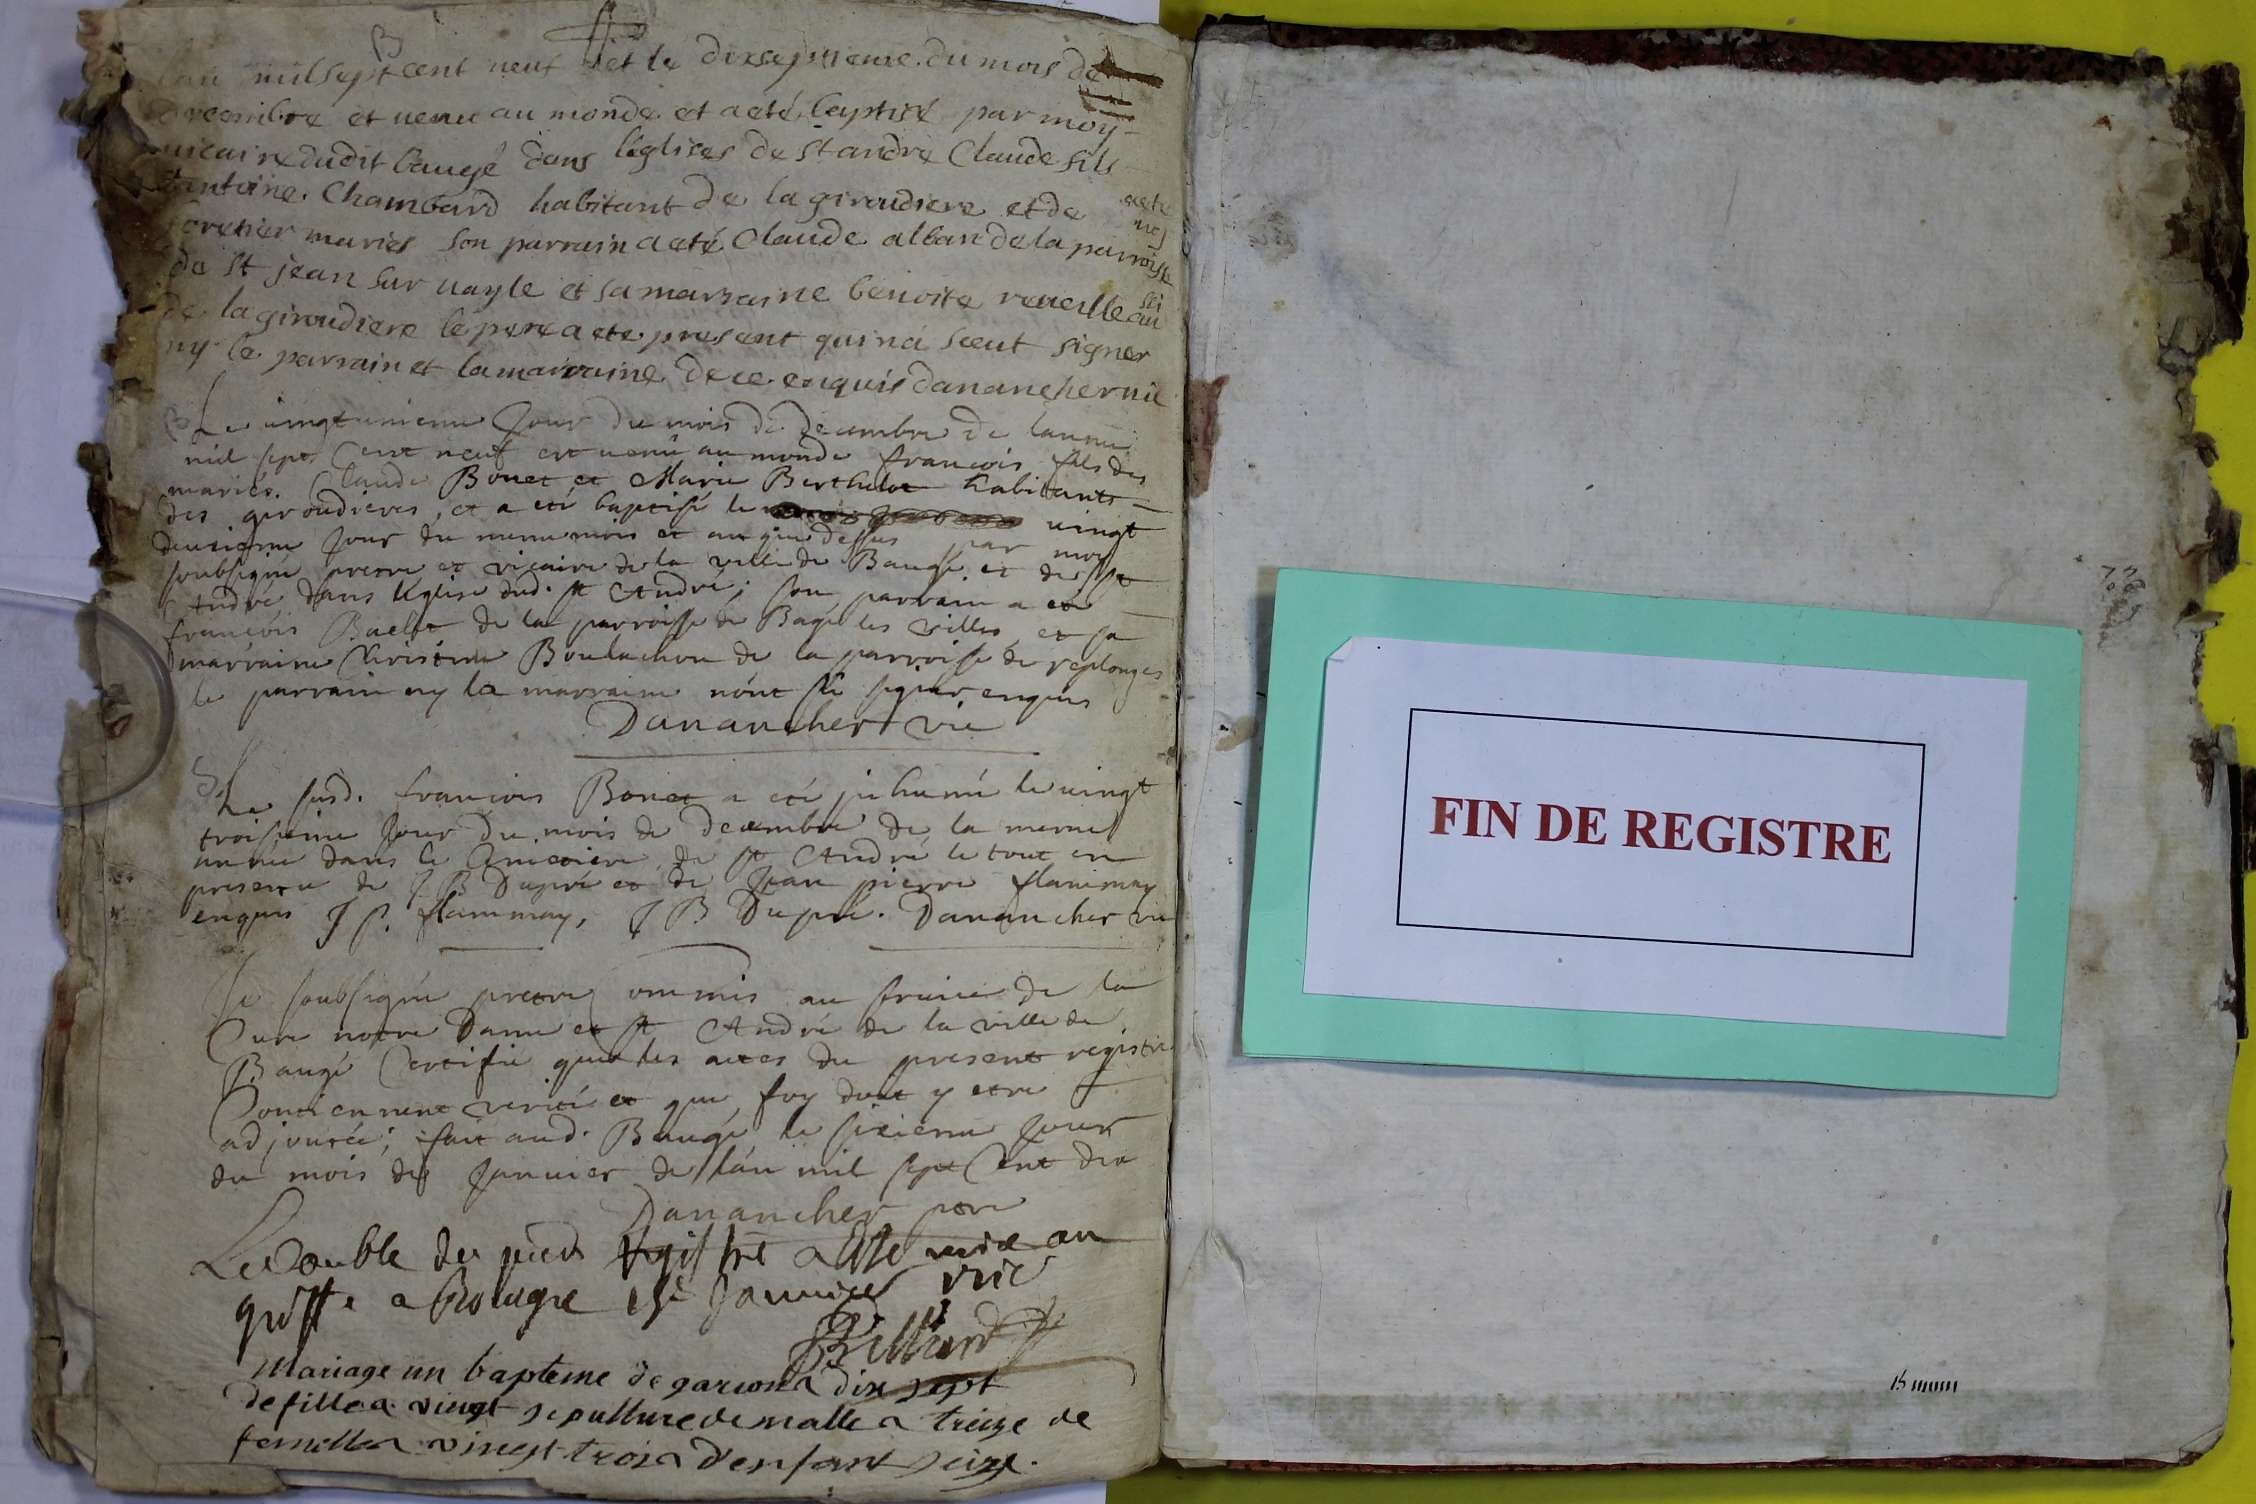 B
Lan mil sept cent neuf et le dixseptieme du mois de
decembre et venu au monde et a eté baptisé par moy
vicaire dudit baugé dans leglises de st andré Claude fils
dantoine Chambard habitant de la giroudiere et de
maries son parrain a eté Claude alban de la parroisse
de st jean sur vayle et sa marraine benoite reveille
de la giroudiere le pere a ete present qui na sceut signer
ny le parrain et la marraine de ce enquis danancher vic
B
Le vingtunieme Jour du mois de decembre de lannee
mil sept Cent neuf est venû au monde francois fils des
mariés Claude Bonet et Marie Berthelot habitants
des giroudieres, et a eté baptisé le vingt
deuxieme Jour du meme mois et an que dessus par moy
soubsigné prestre et vicaire de la ville de Baugé et de st
André dans l'Eglise dud. st André; son parrain a eté
francois de la parroisse de Bagé les villes et sa
marraine Boulachon de la parroisse de replonges
le parrain ny la marraine n'ont sû signer enquis
Danancher vic
S
Le susd. francois Bonet a eté jnhumé le vingt
troisieme Jour du mois de decembre de la meme
année dans le Cimetiere de st André le tout en
presence de J B Dupré et de Jean pierre flammay
enquis J P. flammay, J B Dupré. Danancher vic
Je soubsigné prestre commis au service de la
Cure notre Dame et st André de la ville de
Baugé Certifie que les actes du present registre
Contiennent verité et que foy doit y etre
adjoutée; fait aud. Baugé le sixieme Jour
du mois de Janvier de l'an mil sept Cent dix
Danancher ptre
Le double du registre a esté mis au
greffe a le Janvier
Mariage un bapteme de garcon a dix sept
de fille a vingt sepulture de malle a treize de
femelle a vingt trois d'enfant seize.
FIN DE REGISTRE